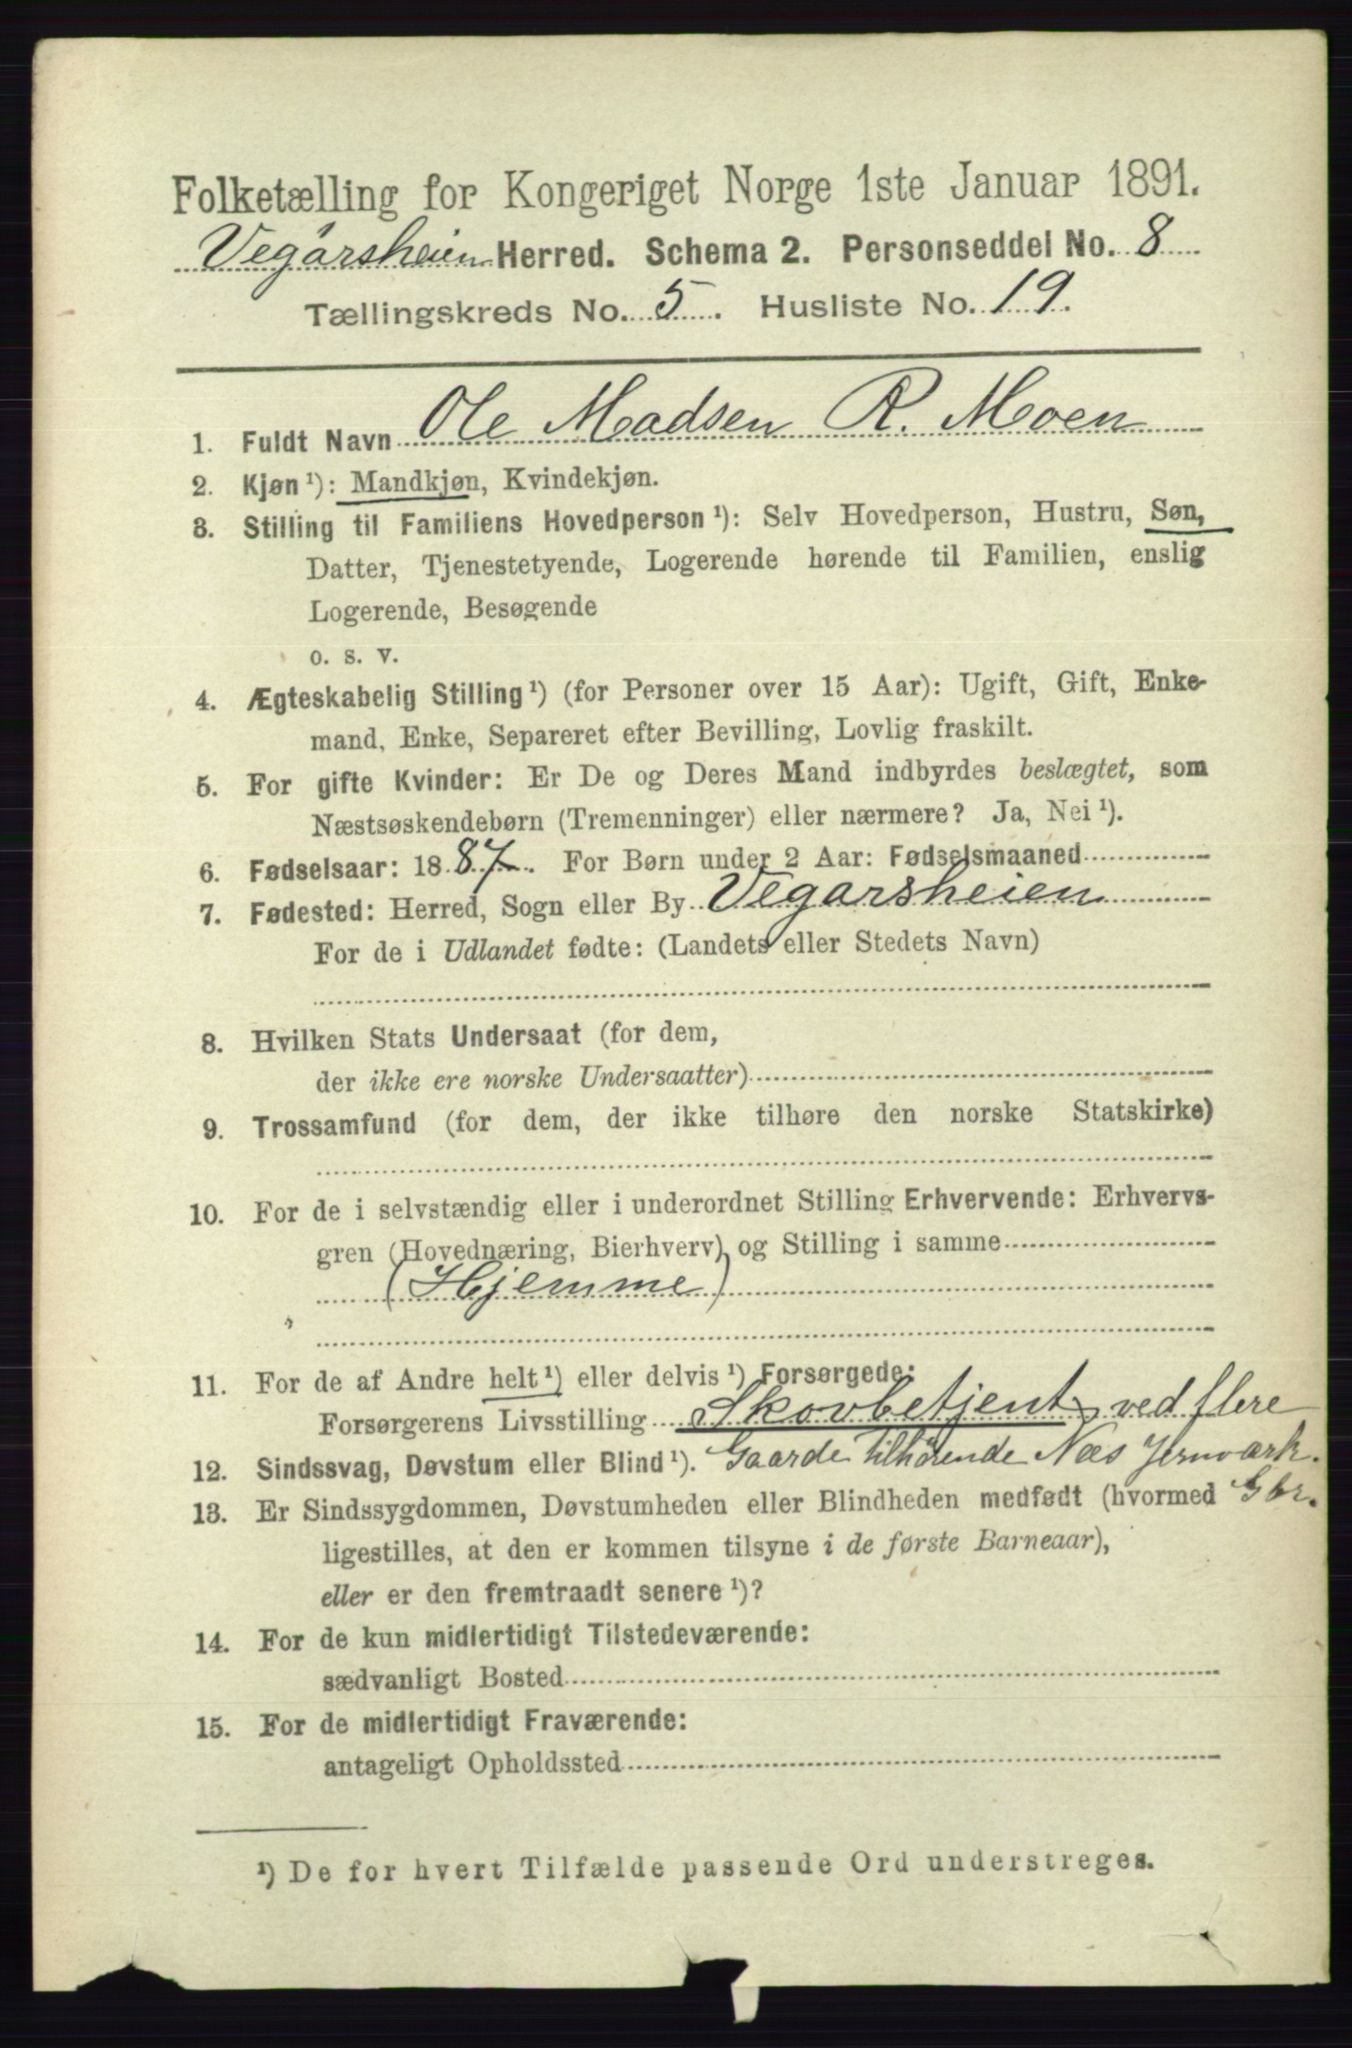 Folketælling for Kongeriget Norge 1ste Januar 1891.
Vegårsheien Herred. Schema 2. Personseddel No. 8
Tællingskreds No. 5. Husliste No. 19.
1. Fuldt Navn Ole Madsen R. Moen
2. Kjøn ¹): Mandkjøn, Kvindekjøn.
3. Stilling til Familiens Hovedperson ¹): Selv Hovedperson, Hustru, Søn,
Datter, Tjenestetyende, Logerende hørende til Familien, enslig
Logerende, Besøgende
o. s. v.
4. Ægteskabelig Stilling ¹) (for Personer over 15 Aar): Ugift, Gift, Enke-
mand, Enke, Separeret efter Bevilling, Lovlig fraskilt.
5. For gifte Kvinder: Er De og Deres Mand indbyrdes beslægtet, som
Næstsøskendebørn (Tremenninger) eller nærmere? Ja, Nei ¹).
6. Fødselsaar: 1887. For Børn under 2 Aar: Fødselsmaaned
7. Fødested: Herred, Sogn eller By Vegarsheien
For de i Udlandet fødte: (Landets eller Stedets Navn)
8. Hvilken Stats Undersaat (for dem,
der ikke ere norske Undersaatter)
9. Trossamfund (for dem, der ikke tilhøre den norske Statskirke)
10. For de i selvstændig eller i underordnet Stilling Erhvervende: Erhvervs-
gren (Hovednæring, Bierhverv) og Stilling i samme
(Hjemme)
11. For de af Andre helt ¹) eller delvis ¹) Forsørgede:
Forsørgerens Livsstilling Skovbetjent, ved flere
12. Sindssvag, Døvstum eller Blind ¹). Gaarde tilhørende Næs Jernværk.
13. Er Sindssygdommen, Døvstumheden eller Blindheden medfødt (hvormed Gbr.
ligestilles, at den er kommen tilsyne i de første Barneaar),
eller er den fremtraadt senere ¹)?
14. For de kun midlertidigt Tilstedeværende:
sædvanligt Bosted
15. For de midlertidigt Fraværende:
antageligt Opholdssted
¹) De for hvert Tilfælde passende Ord understreges.